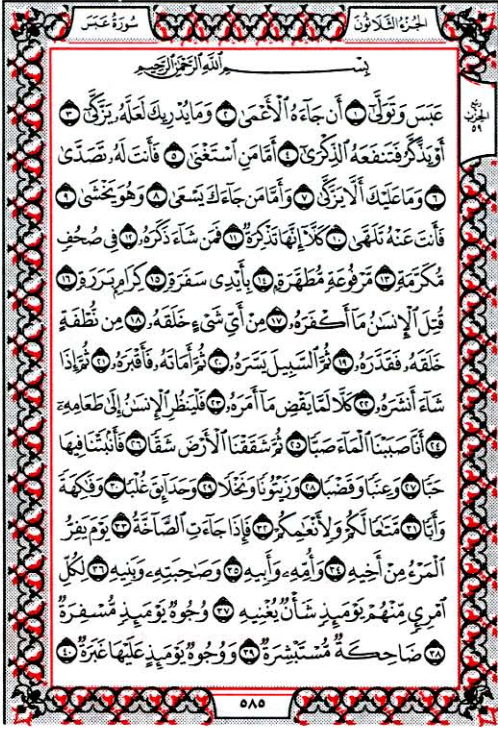 الجزء الثلاثون
سورة عبس
ربع
الحزب
٥٩
بِسْمِ ٱللَّهِ ٱلرَّحْمَٰنِ ٱلرَّحِيمِ
عَبَسَ وَتَوَلَّىٰٓ ١ أَن جَآءَهُ ٱلْأَعْمَىٰ ٢ وَمَا يُدْرِيكَ لَعَلَّهُۥ يَزَّكَّىٰٓ ٣
أَوْ يَذَّكَّرُ فَتَنفَعَهُ ٱلذِّكْرَىٰٓ ٤ أَمَّا مَنِ ٱسْتَغْنَىٰ ٥ فَأَنتَ لَهُۥ تَصَدَّىٰ
٦ وَمَا عَلَيْكَ أَلَّا يَزَّكَّىٰ ٧ وَأَمَّا مَن جَآءَكَ يَسْعَىٰ ٨ وَهُوَ يَخْشَىٰ ٩
فَأَنتَ عَنْهُ تَلَهَّىٰ ١٠ كَلَّآ إِنَّهَا تَذْكِرَةٌ ١١ فَمَن شَآءَ ذَكَرَهُۥ ١٢ فِى صُحُفٍ
مُّكَرَّمَةٍ ١٣ مَّرْفُوعَةٍ مُّطَهَّرَةٍۭ ١٤ بِأَيْدِى سَفَرَةٍ ١٥ كِرَامٍۭ بَرَرَةٍ ١٦
قُتِلَ ٱلْإِنسَٰنُ مَآ أَكْفَرَهُۥ ١٧ مِنْ أَىِّ شَىْءٍ خَلَقَهُۥ ١٨ مِن نُّطْفَةٍ
خَلَقَهُۥ فَقَدَّرَهُۥ ١٩ ثُمَّ ٱلسَّبِيلَ يَسَّرَهُۥ ٢٠ ثُمَّ أَمَاتَهُۥ فَأَقْبَرَهُۥ ٢١ ثُمَّ إِذَا
شَآءَ أَنشَرَهُۥ ٢٢ كَلَّا لَمَّا يَقْضِ مَآ أَمَرَهُۥ ٢٣ فَلْيَنظُرِ ٱلْإِنسَٰنُ إِلَىٰ طَعَامِهِۦٓ
٢٤ أَنَّا صَبَبْنَا ٱلْمَآءَ صَبًّا ٢٥ ثُمَّ شَقَقْنَا ٱلْأَرْضَ شَقًّا ٢٦ فَأَنۢبَتْنَا فِيهَا
حَبًّا ٢٧ وَعِنَبًا وَقَضْبًا ٢٨ وَزَيْتُونًا وَنَخْلًا ٢٩ وَحَدَآئِقَ غُلْبًا ٣٠ وَفَٰكِهَةً
وَأَبًّا ٣١ مَّتَٰعًا لَّكُمْ وَلِأَنْعَٰمِكُمْ ٣٢ فَإِذَا جَآءَتِ ٱلصَّآخَّةُ ٣٣ يَوْمَ يَفِرُّ
ٱلْمَرْءُ مِنْ أَخِيهِ ٣٤ وَأُمِّهِۦ وَأَبِيهِ ٣٥ وَصَٰحِبَتِهِۦ وَبَنِيهِ ٣٦ لِكُلِّ
ٱمْرِئٍ مِّنْهُمْ يَوْمَئِذٍ شَأْنٌ يُغْنِيهِ ٣٧ وُجُوهٌ يَوْمَئِذٍ مُّسْفِرَةٌ
٣٨ ضَاحِكَةٌ مُّسْتَبْشِرَةٌ ٣٩ وَوُجُوهٌ يَوْمَئِذٍ عَلَيْهَا غَبَرَةٌ ٤٠
٥٨٥